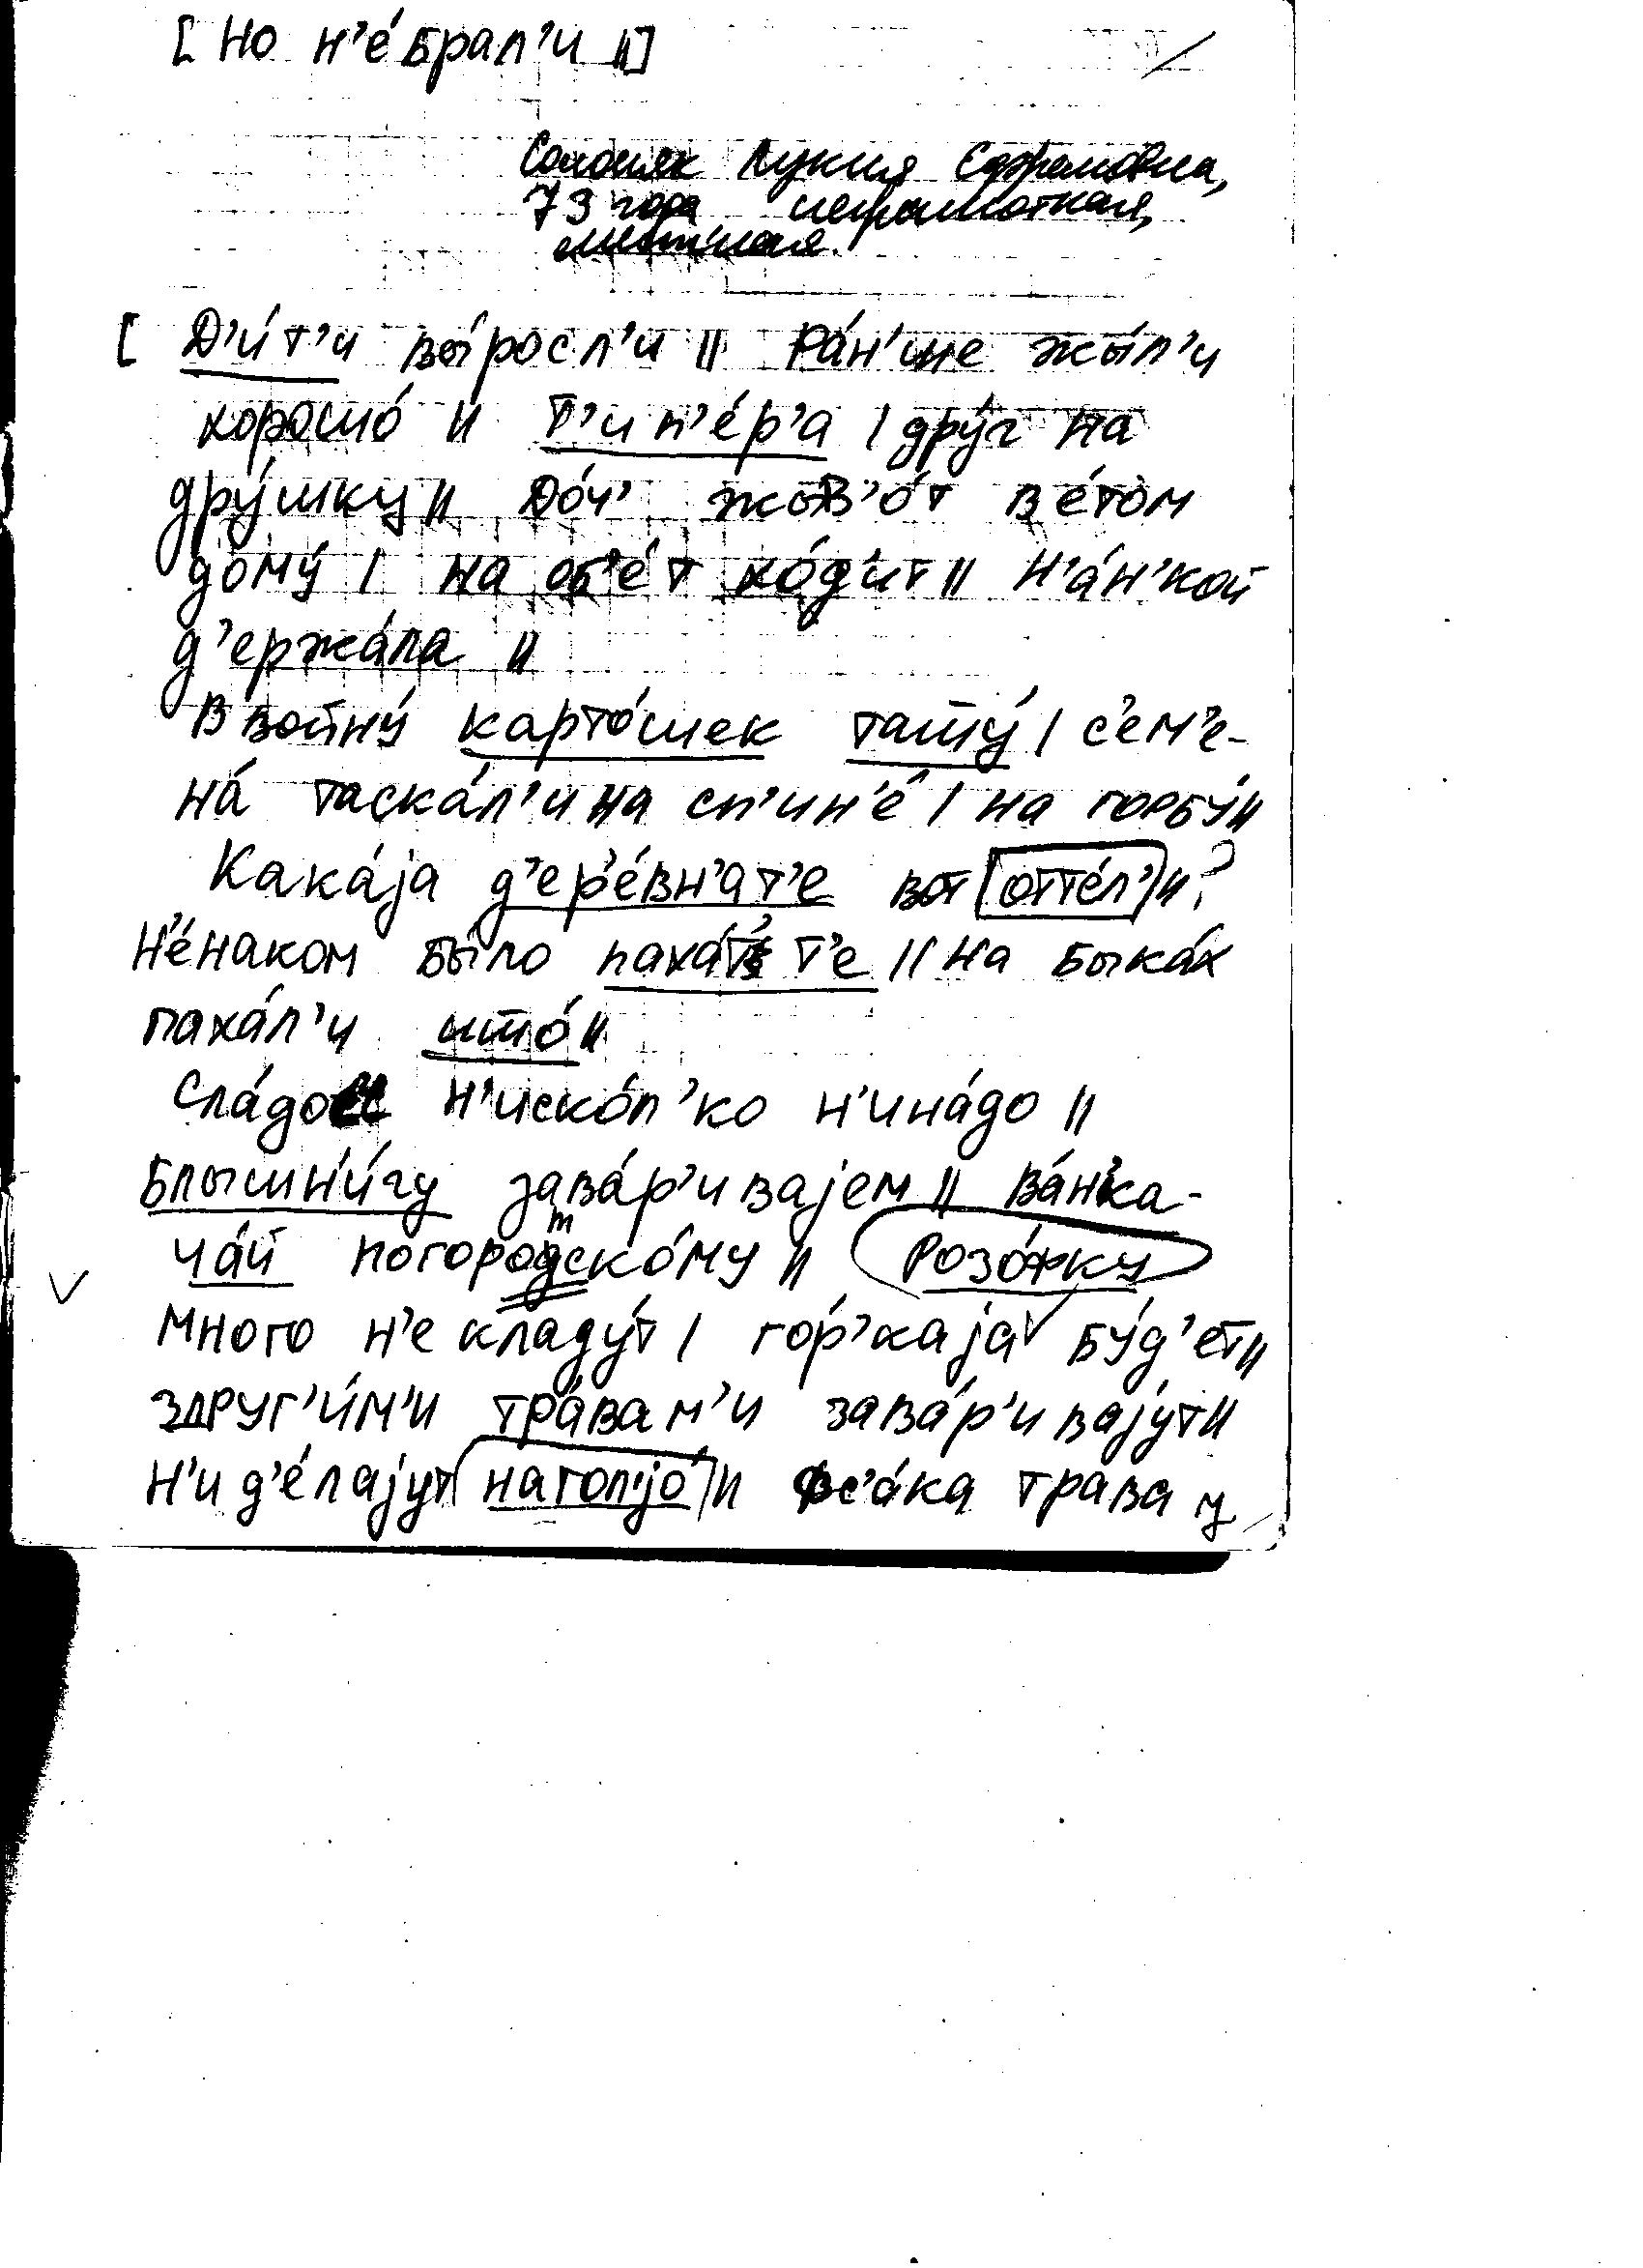 [ Но н'е́брал'и ‖]
Лукия Ефремовна,
73 года неграмотная,
местная.
[ Д'и́т'и вы́росл'и ‖ Ра́н'ше жы́л'и
хорошо́ ‖ Т'ип'е́р'а | дру́г на
дру́шку ‖ До́ч' жыв'о́т в е́том
дому́ | на об'е́т хо́д'ит ‖ Н'а́н'кой
д'ержа́ла ‖
В войну́ карто́шек ташу́ | с'ем'е-
на́ таска́л'и на сп'ин'е́ | на горбу́ ‖
Кака́jа д'ер'е́вн'ат'е вот (отте́л') ‖ ?
Н'е́наком бы́ло паха́т' т'е ‖ На быка́х
паха́л'и што́ ‖
Сла́дос н'иско́л'ко н'ина́до ‖
Блышн'и́гу зава́р'иваjем ‖ Ва́н'ка-
ча́й погородско́му ‖ Розо́жку
много н'е кладу́т | го́р'каjа бу́д'ет ‖
здруг'и́м'и тра́вам'и зава́р'иваjут ‖
Н'и д'е́лаjут (нагол'jо́) ‖ Фс'а́ка трава у